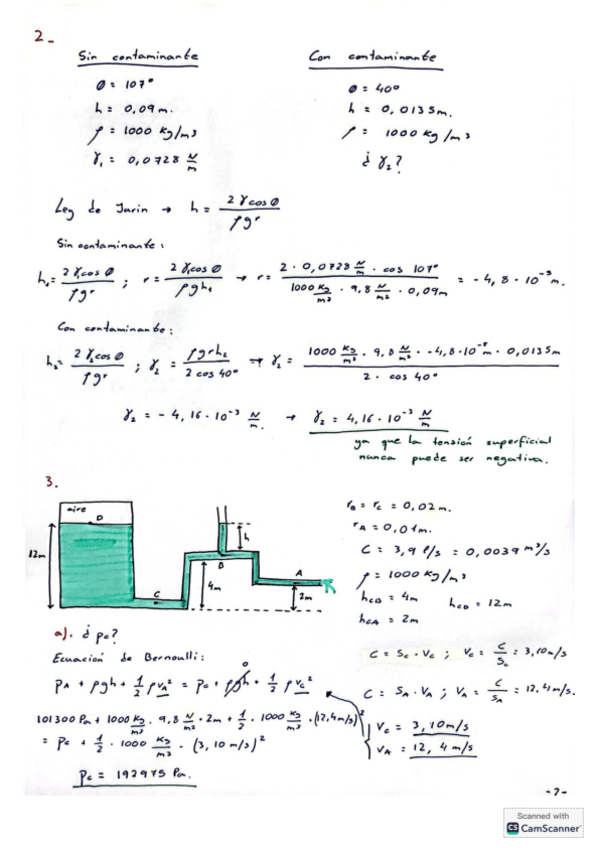 2_
Sin contaminante
Con contaminante
Ø = 107°
Ø = 40°
h = 0,09 m.
h = 0,0135 m.
ρ = 1000 Kg/m³
ρ = 1000 Kg/m³
γ₁ = 0,0728 N/m
¿ γ₂?
Ley de Jurin → h = 2 γ cos Ø / ρ g r
Sin contaminante:
h₁ = 2 γ₁ cos Ø / ρ g r ; r = 2 γ₁ cos Ø / ρ g h₁ → r = 2 · 0,0728 N/m · cos 107° / 1000 Kg/m³ · 9,8 N/m² · 0,09m = -4,8 · 10⁻⁵ m.
Con contaminante:
h₂ = 2 γ₂ cos Ø / ρ g r ; γ₂ = ρ g r h₂ / 2 cos 40° → γ₂ = 1000 Kg/m³ · 9,8 N/m² · -4,8·10⁻⁵ m · 0,0135m / 2 · cos 40°
γ₂ = - 4,16 · 10⁻³ N/m. → γ₂ = 4,16 · 10⁻³ N/m
ya que la tensión superficial
nunca puede ser negativa.
3.
aire
D
12m
C
h
B
4m
A
2m
r_B = r_C = 0,02m.
r_A = 0,01m.
C = 3,9 l/s = 0,0039 m³/s
ρ = 1000 Kg/m³
h_CB = 4m
h_CD = 12m
h_CA = 2m
a). ¿ p_C?
Ecuación de Bernoulli:
p_A + ρgh + 1/2 ρv_A² = p_C + ρgh + 1/2 ρv_C²
0
C = S_C · V_C ; V_C = C/S_C = 3,10 m/s
C = S_A · V_A ; V_A = C/S_A = 12,4 m/s.
101300 Pa + 1000 Kg/m³ · 9,8 N/m² · 2m + 1/2 · 1000 Kg/m³ · (12,4 m/s)²
= p_C + 1/2 · 1000 Kg/m³ · (3,10 m/s)²
V_C = 3,10 m/s
V_A = 12,4 m/s
p_C = 192975 Pa.
-2-
Scanned with
CS CamScanner